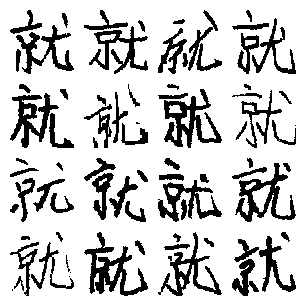 就就就就
就就就就
就就就就
就就就就